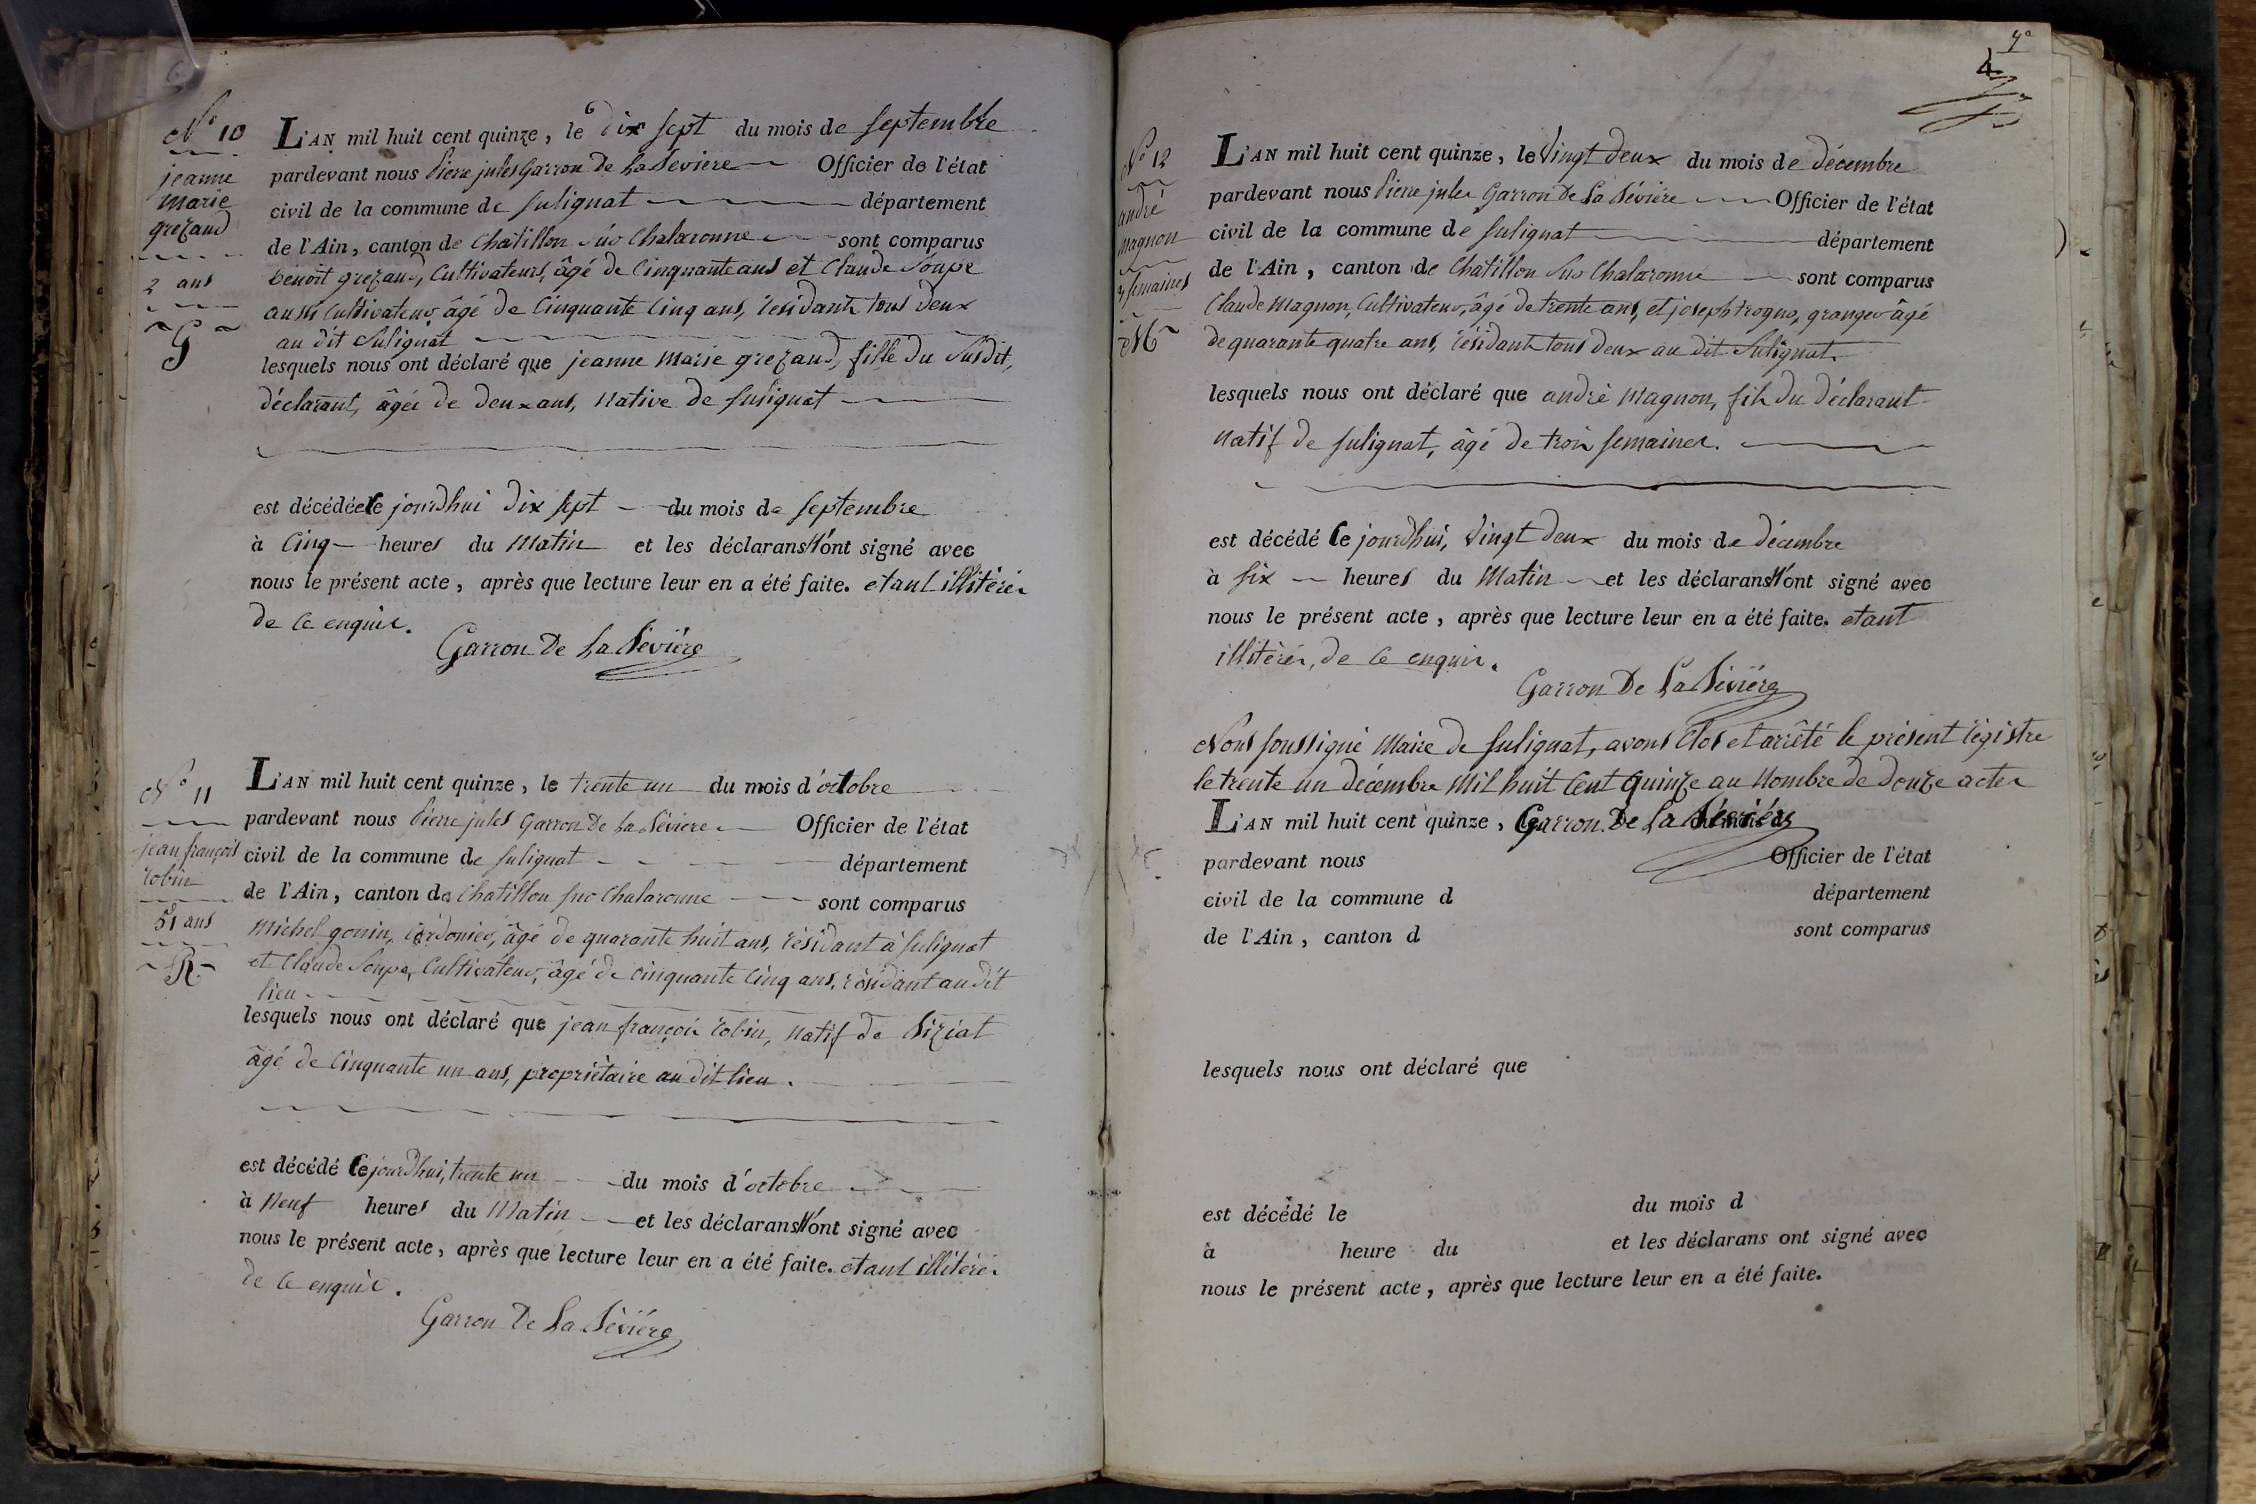 N.° 10
jeanne
marie
grezaud
2 ans
G
L'AN mil huit cent quinze, le dix sept du mois de septembre
pardevant nous Pierre jules Garron De La Seviere Officier de l'état
civil de la commune de sulignat département
de l'Ain, canton de Châtillon sur Chalaronne sont comparus
benoit grezaud, Cultivateur, âgé de Cinquante ans et Claude Soupe
aussi Cultivateur âgé de Cinquante Cinq ans, résidants tous deux
au dit Sulignat
lesquels nous ont déclaré que jeanne marie grezaud, fille du susdit,
déclarant, âgée de deux ans, Native de sulignat
est décédée Ce jourdhui dix sept du mois de septembre
à Cinq heures du Matin et les déclarans N'ont signé avec
nous le présent acte, après que lecture leur en a été faite. etant illitérés
de ce enquis.
Garron De La Sévière
N° 11
jean françois
robin
51 ans
R
L'AN mil huit cent quinze, le trente un du mois d'octobre
pardevant nous Pierre jules Garron De La Séviere Officier de l'état
civil de la commune de sulignat département
de l'Ain, canton de Chatillon sur Chalaronne sont comparus
Michel gonin, Cordonier, âgé de quarante huit ans, résidant à sulignat
et Claude Soupe, Cultivateur, âgé de cinquante Cinq ans, résidant au dit
lieu
lesquels nous ont déclaré que jean françois robin, natif de Siziat
âgé de Cinquante un ans, propriètaire au dit lieu.
est décédé Ce jourdhui, trente un du mois d'octobre
à Neuf heures du Matin et les déclarans N'ont signé avec
nous le présent acte, après que lecture leur en a été faite. etant illitérés
de ce enquis.
Garron De La Sévière
4
N° 12
andré
magnon
3 semaines
M
L'AN mil huit cent quinze, le Vingt deux du mois de décembre
pardevant nous Pierre jules Garron De La Sévière Officier de l'état
civil de la commune de sulignat département
de l'Ain, canton de Chatillon sur Chalaronne sont comparus
Claude Magnon, Cultivateur, âgé de trente ans, et joseph trogno, granger âgé
de quarante quatre ans, résidants tous deux au dit Sulignat.
lesquels nous ont déclaré que andré Magnon, fils du déclarant
natif de sulignat, âgé de trois semaines.
est décédé Ce jourdhui, Vingt deux du mois de décembre
à six heures du Matin et les déclarans N'ont signé avec
nous le présent acte, après que lecture leur en a été faite. etant
illitérés, de ce enquis.
Garron De La Sévière
Nous soussigné Maire de sulignat, avons Clos et arrêté le présent régistre
le trente un décembre Mil huit Cent Quinze au Nombre de douze actes
Garron De La Sévière
L'AN mil huit cent quinze, le du mois d
pardevant nous Officier de l'état
civil de la commune d département
de l'Ain, canton d sont comparus
lesquels nous ont déclaré que
est décédé le du mois d
à heure du et les déclarans ont signé avec
nous le présent acte, après que lecture leur en a été faite.